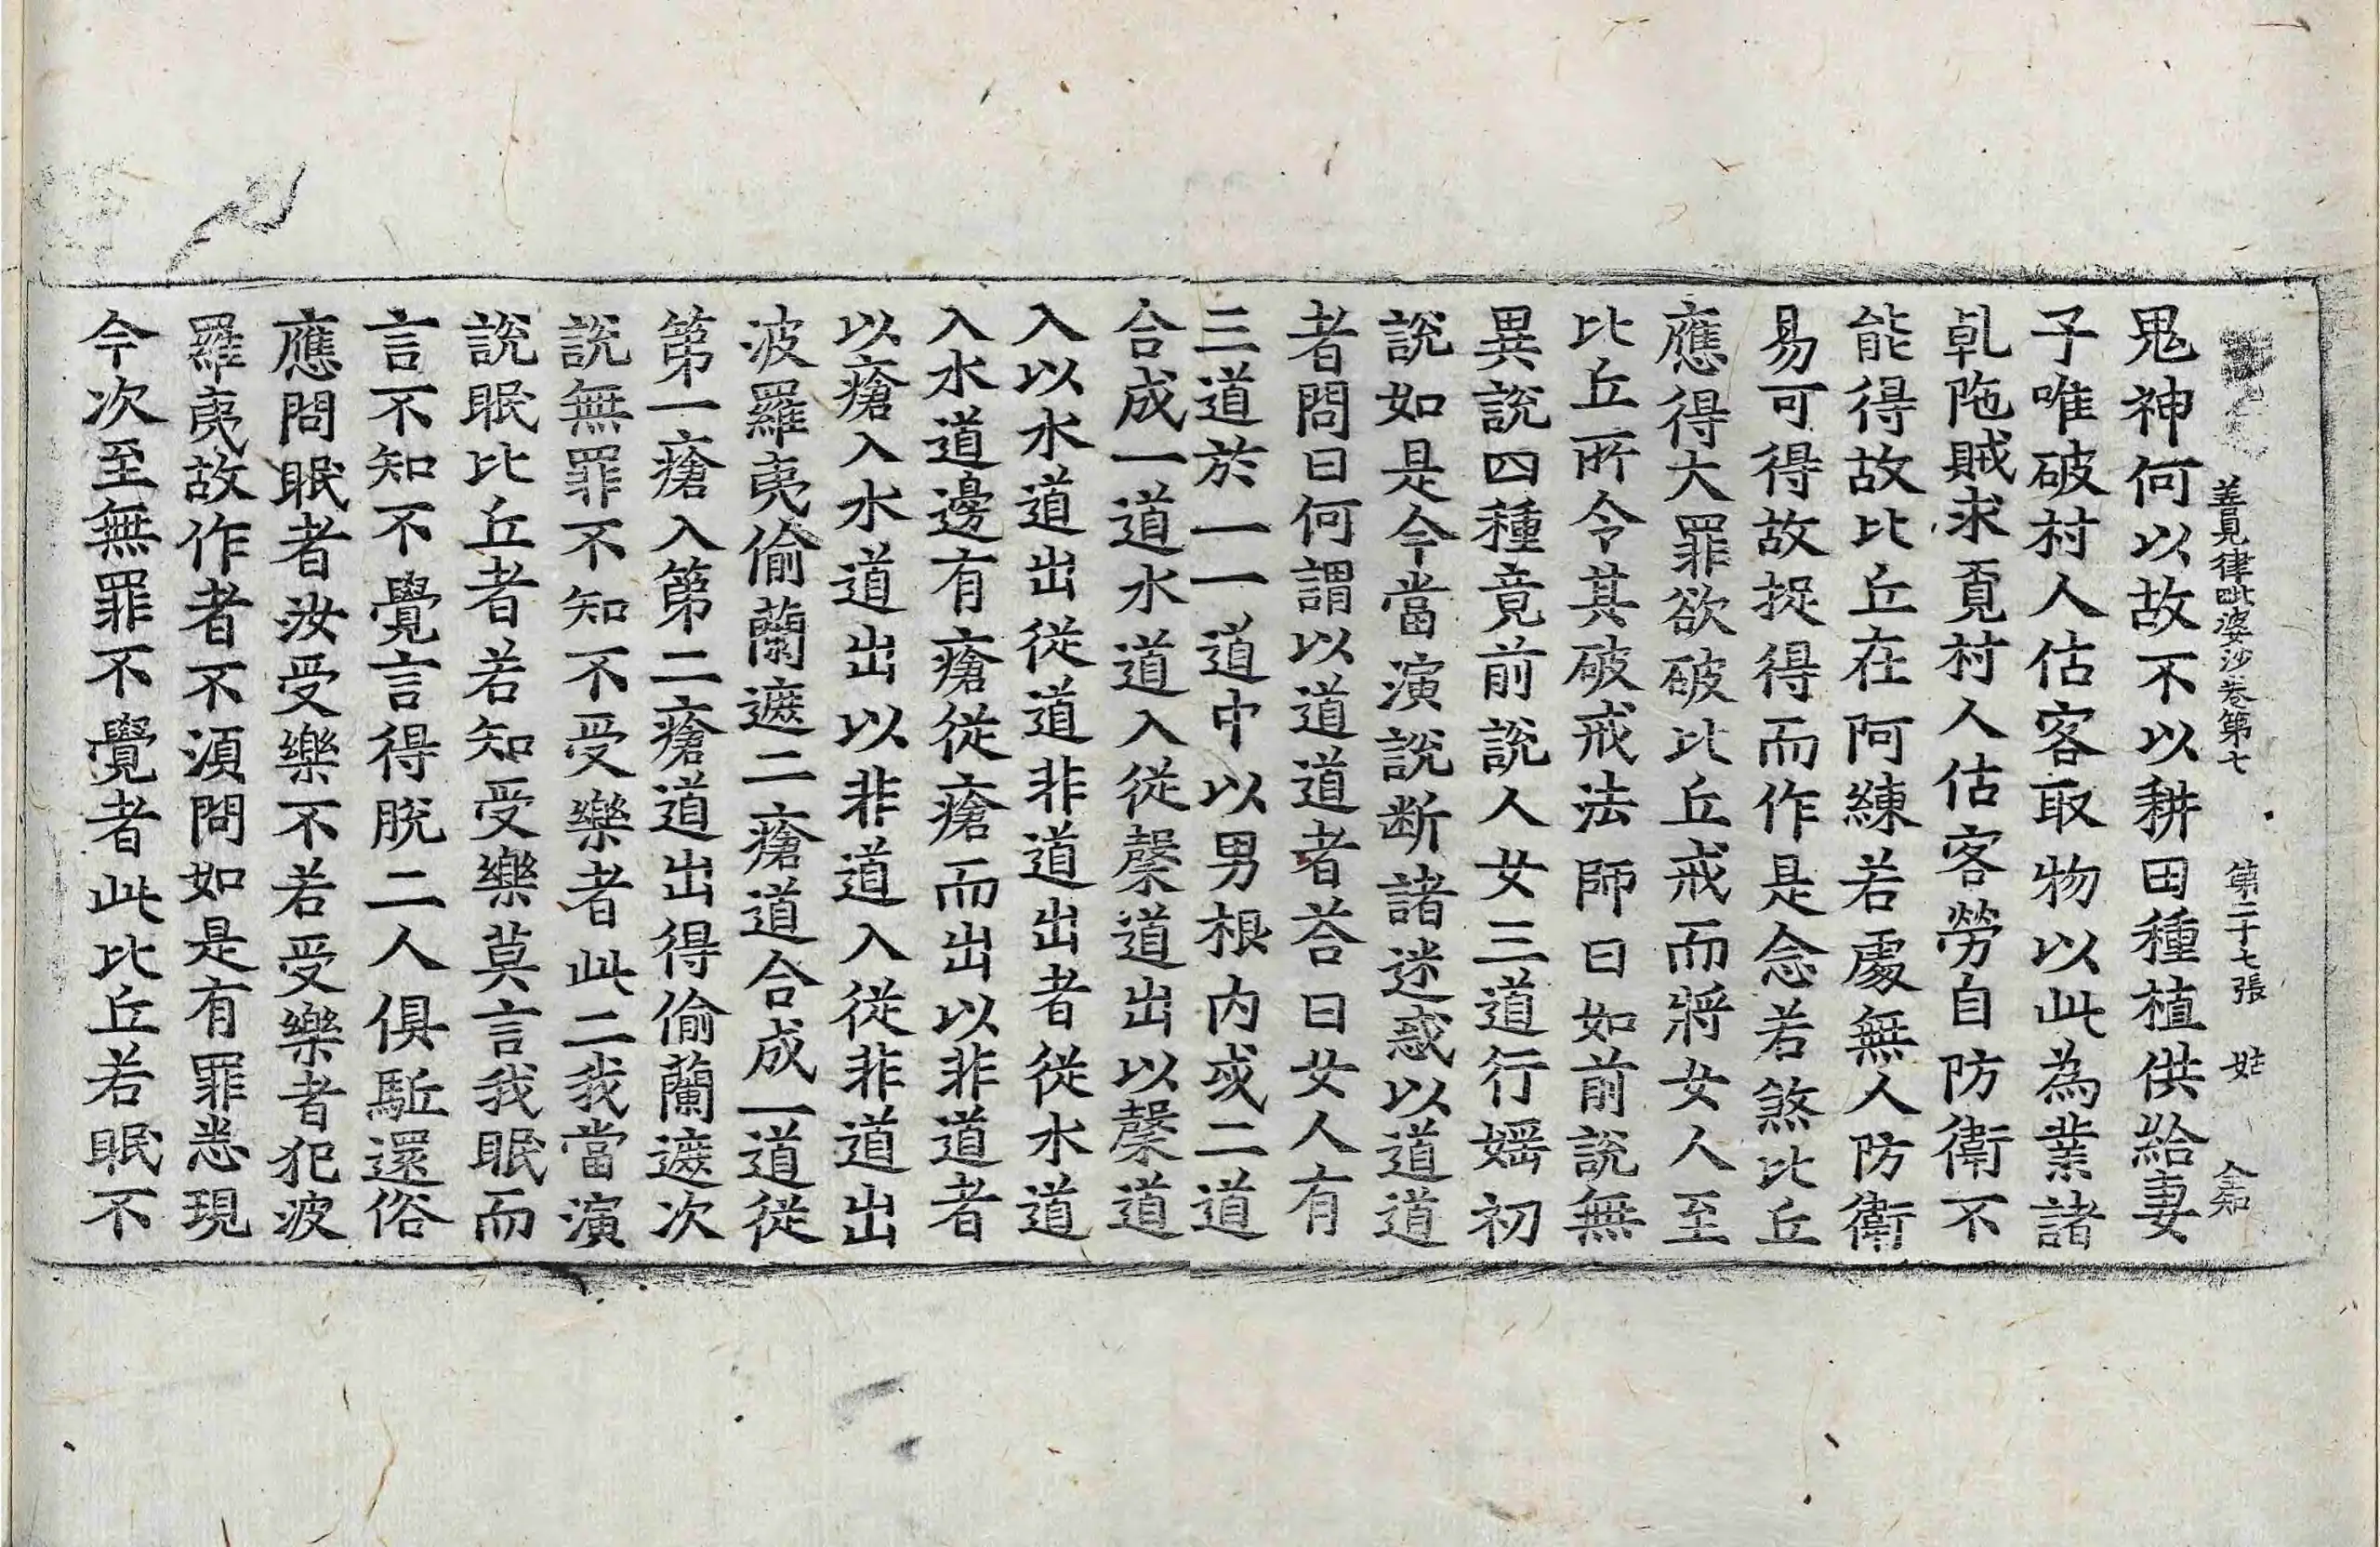 善見律毗婆沙卷第七　第二十七張　姑
鬼神何以故不以耕田種植供給妻
子唯破村人估客取物以此為業諸
乹陁賊求覔村人估客勞自防衛不
能得故比丘在阿練若處無人防衛
易可得故捉得而作是念若煞比丘
應得大罪欲破比丘戒而將女人至
比丘所令其破戒法師曰如前說無
異說四種竟前說人女三道行婬初
說如是今當演說断諸迷惑以道道
者問曰何謂以道道者荅曰女人有
三道於一一道中以男根内或二道
合成一道水道入從㲉道出以㲉道
入以水道出從道非道出者從水道
入水道邊有瘡從瘡而出以非道者
以瘡入水道出以非道入從非道出
波羅夷偷蘭遮二瘡道合成一道從
第一瘡入第二瘡道出得偷蘭遮次
說無罪不知不受樂者此二我當演
說眠比丘者若知受樂莫言我眠而
言不知不覺言得脫二人俱駈還俗
應問眠者汝受樂不若受樂者犯波
羅夷故作者不湏問如是有罪悉現
今次至無罪不覺者此比丘若眠不